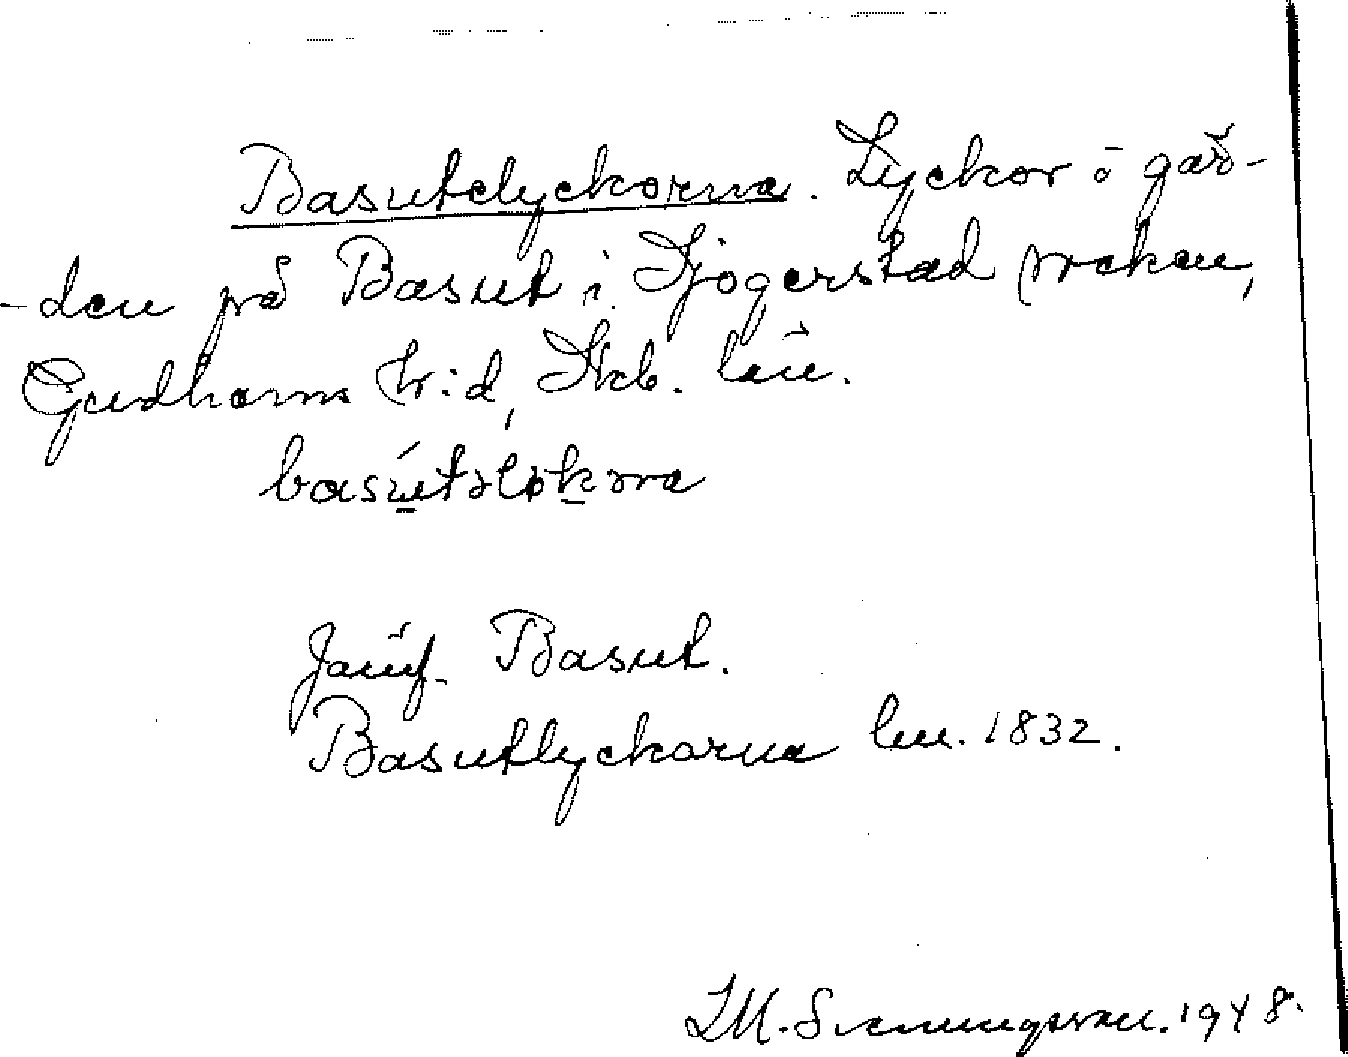 Basutelyckorna. Lyckor i går-
-den på Basut i Sjogerstad socken,
Gudhems hr:d, Skb. län.
Jämf. Basut.
Basutlyckorna lm. 1832.
LM. Svenungsson. 1948.